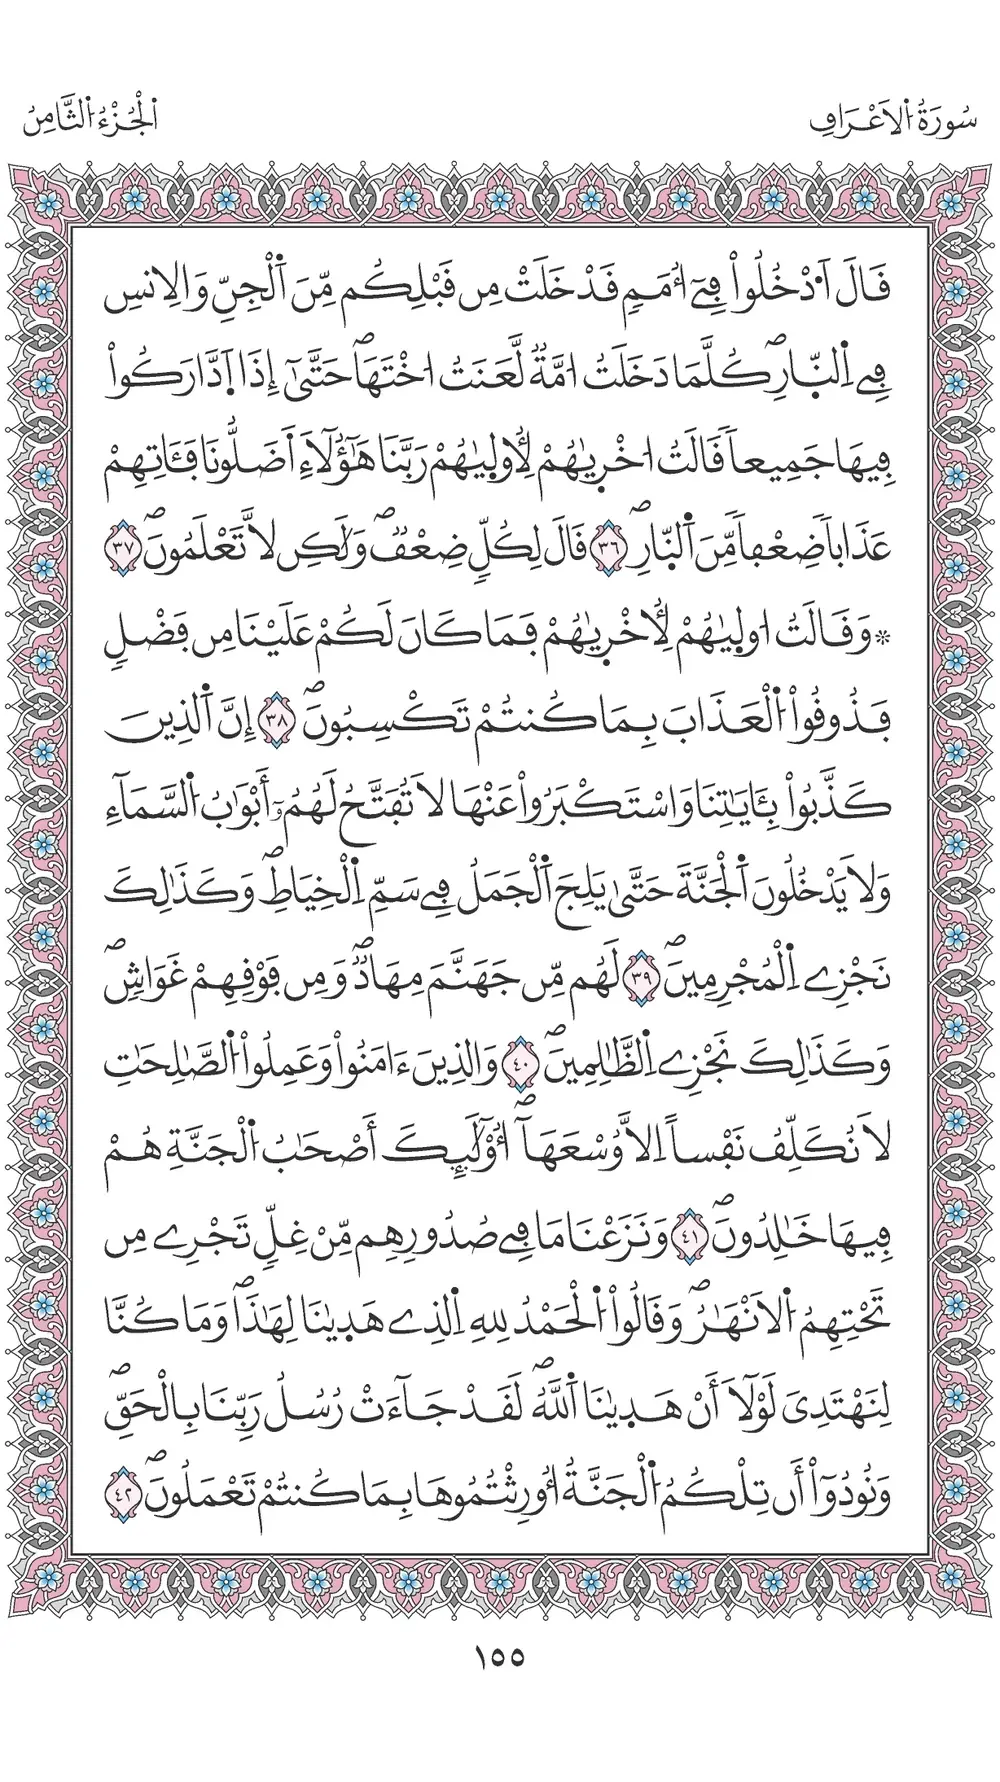 سُورَةُ اُ۬لَاعْرَافِ
اَ۬لْجُزْءُ اُ۬لثَّامِنُ
قَالَ اَ۟دْخُلُواْ فِےٓ أُمَمٖ قَدْ خَلَتْ مِن قَبْلِكُم مِّنَ اَ۬لْجِنِّ وَالِانسِ
فِے اِ۬لنّ۪ارِۖ كُلَّمَا دَخَلَتُ ا۟مَّةٞ لَّعَنَتُ ا۟خْتَهَاۖ حَتَّىٰٓ إِذَا اَ۪دَّارَكُواْ
فِيهَا جَمِيعاٗ قَالَتُ ا۟خْر۪يٰهُمْ لِأُول۪يٰهُمْ رَبَّنَا هَٰٓؤُلَآءِ اَ۬ضَلُّونَا فَـَٔاتِهِمْ
عَذَاباٗ ضِعْفاٗ مِّنَ اَ۬لنّ۪ارِۖ ٣٦ قَالَ لِكُلّٖ ضِعْفٞۖ وَلَٰكِن لَّا تَعْلَمُونَۖ ٣٧
۞ وَقَالَتُ ا۟ول۪يٰهُمْ لِأُخْر۪يٰهُمْ فَمَا كَانَ لَكُمْ عَلَيْنَا مِن فَضْلٖ
فَذُوقُواْ اُ۬لْعَذَابَ بِمَا كُنتُمْ تَكْسِبُونَۖ ٣٨ إِنَّ اَ۬لذِينَ
كَذَّبُواْ بِـَٔايَٰتِنَا وَاسْتَكْبَرُواْ عَنْهَا لَا تُفَتَّحُ لَهُمُۥٓ أَبْوَٰبُ اُ۬لسَّمَآءِ
وَلَا يَدْخُلُونَ اَ۬لْجَنَّةَ حَتَّىٰ يَلِجَ اَ۬لْجَمَلُ فِے سَمِّ اِ۬لْخِيَاطِۖ وَكَذَٰلِكَ
نَجْزِے اِ۬لْمُجْرِمِينَۖ ٣٩ لَهُم مِّن جَهَنَّمَ مِهَادٞۖ وَمِن فَوْقِهِمْ غَوَاشٖۖ
وَكَذَٰلِكَ نَجْزِے اِ۬لظَّٰلِمِينَۖ ٤٠ وَالذِينَ ءَامَنُواْ وَعَمِلُواْ اُ۬لصَّٰلِحَٰتِ
لَا نُكَلِّفُ نَفْساً اِلَّا وُسْعَهَآۖ أُوْلَٰٓئِكَ أَصْحَٰبُ اُ۬لْجَنَّةِ هُمْ
فِيهَا خَٰلِدُونَۖ ٤١ وَنَزَعْنَا مَا فِے صُدُورِهِم مِّنْ غِلّٖ تَجْرِے مِن
تَحْتِهِمُ اُ۬لَانْهَٰرُۖ وَقَالُواْ اُ۬لْحَمْدُ لِلهِ اِ۬لذِے هَد۪يٰنَا لِهَٰذَاۖ وَمَا كُنَّا
لِنَهْتَدِيَ لَوْلَآ أَنْ هَد۪يٰنَا اَ۬للَّهُۖ لَقَدْ جَآءَتْ رُسُلُ رَبِّنَا بِالْحَقِّۖ
وَنُودُوٓاْ أَن تِلْكُمُ اُ۬لْجَنَّةُ أُورِثْتُمُوهَا بِمَا كُنتُمْ تَعْمَلُونَۖ ٤٢
١٥٥